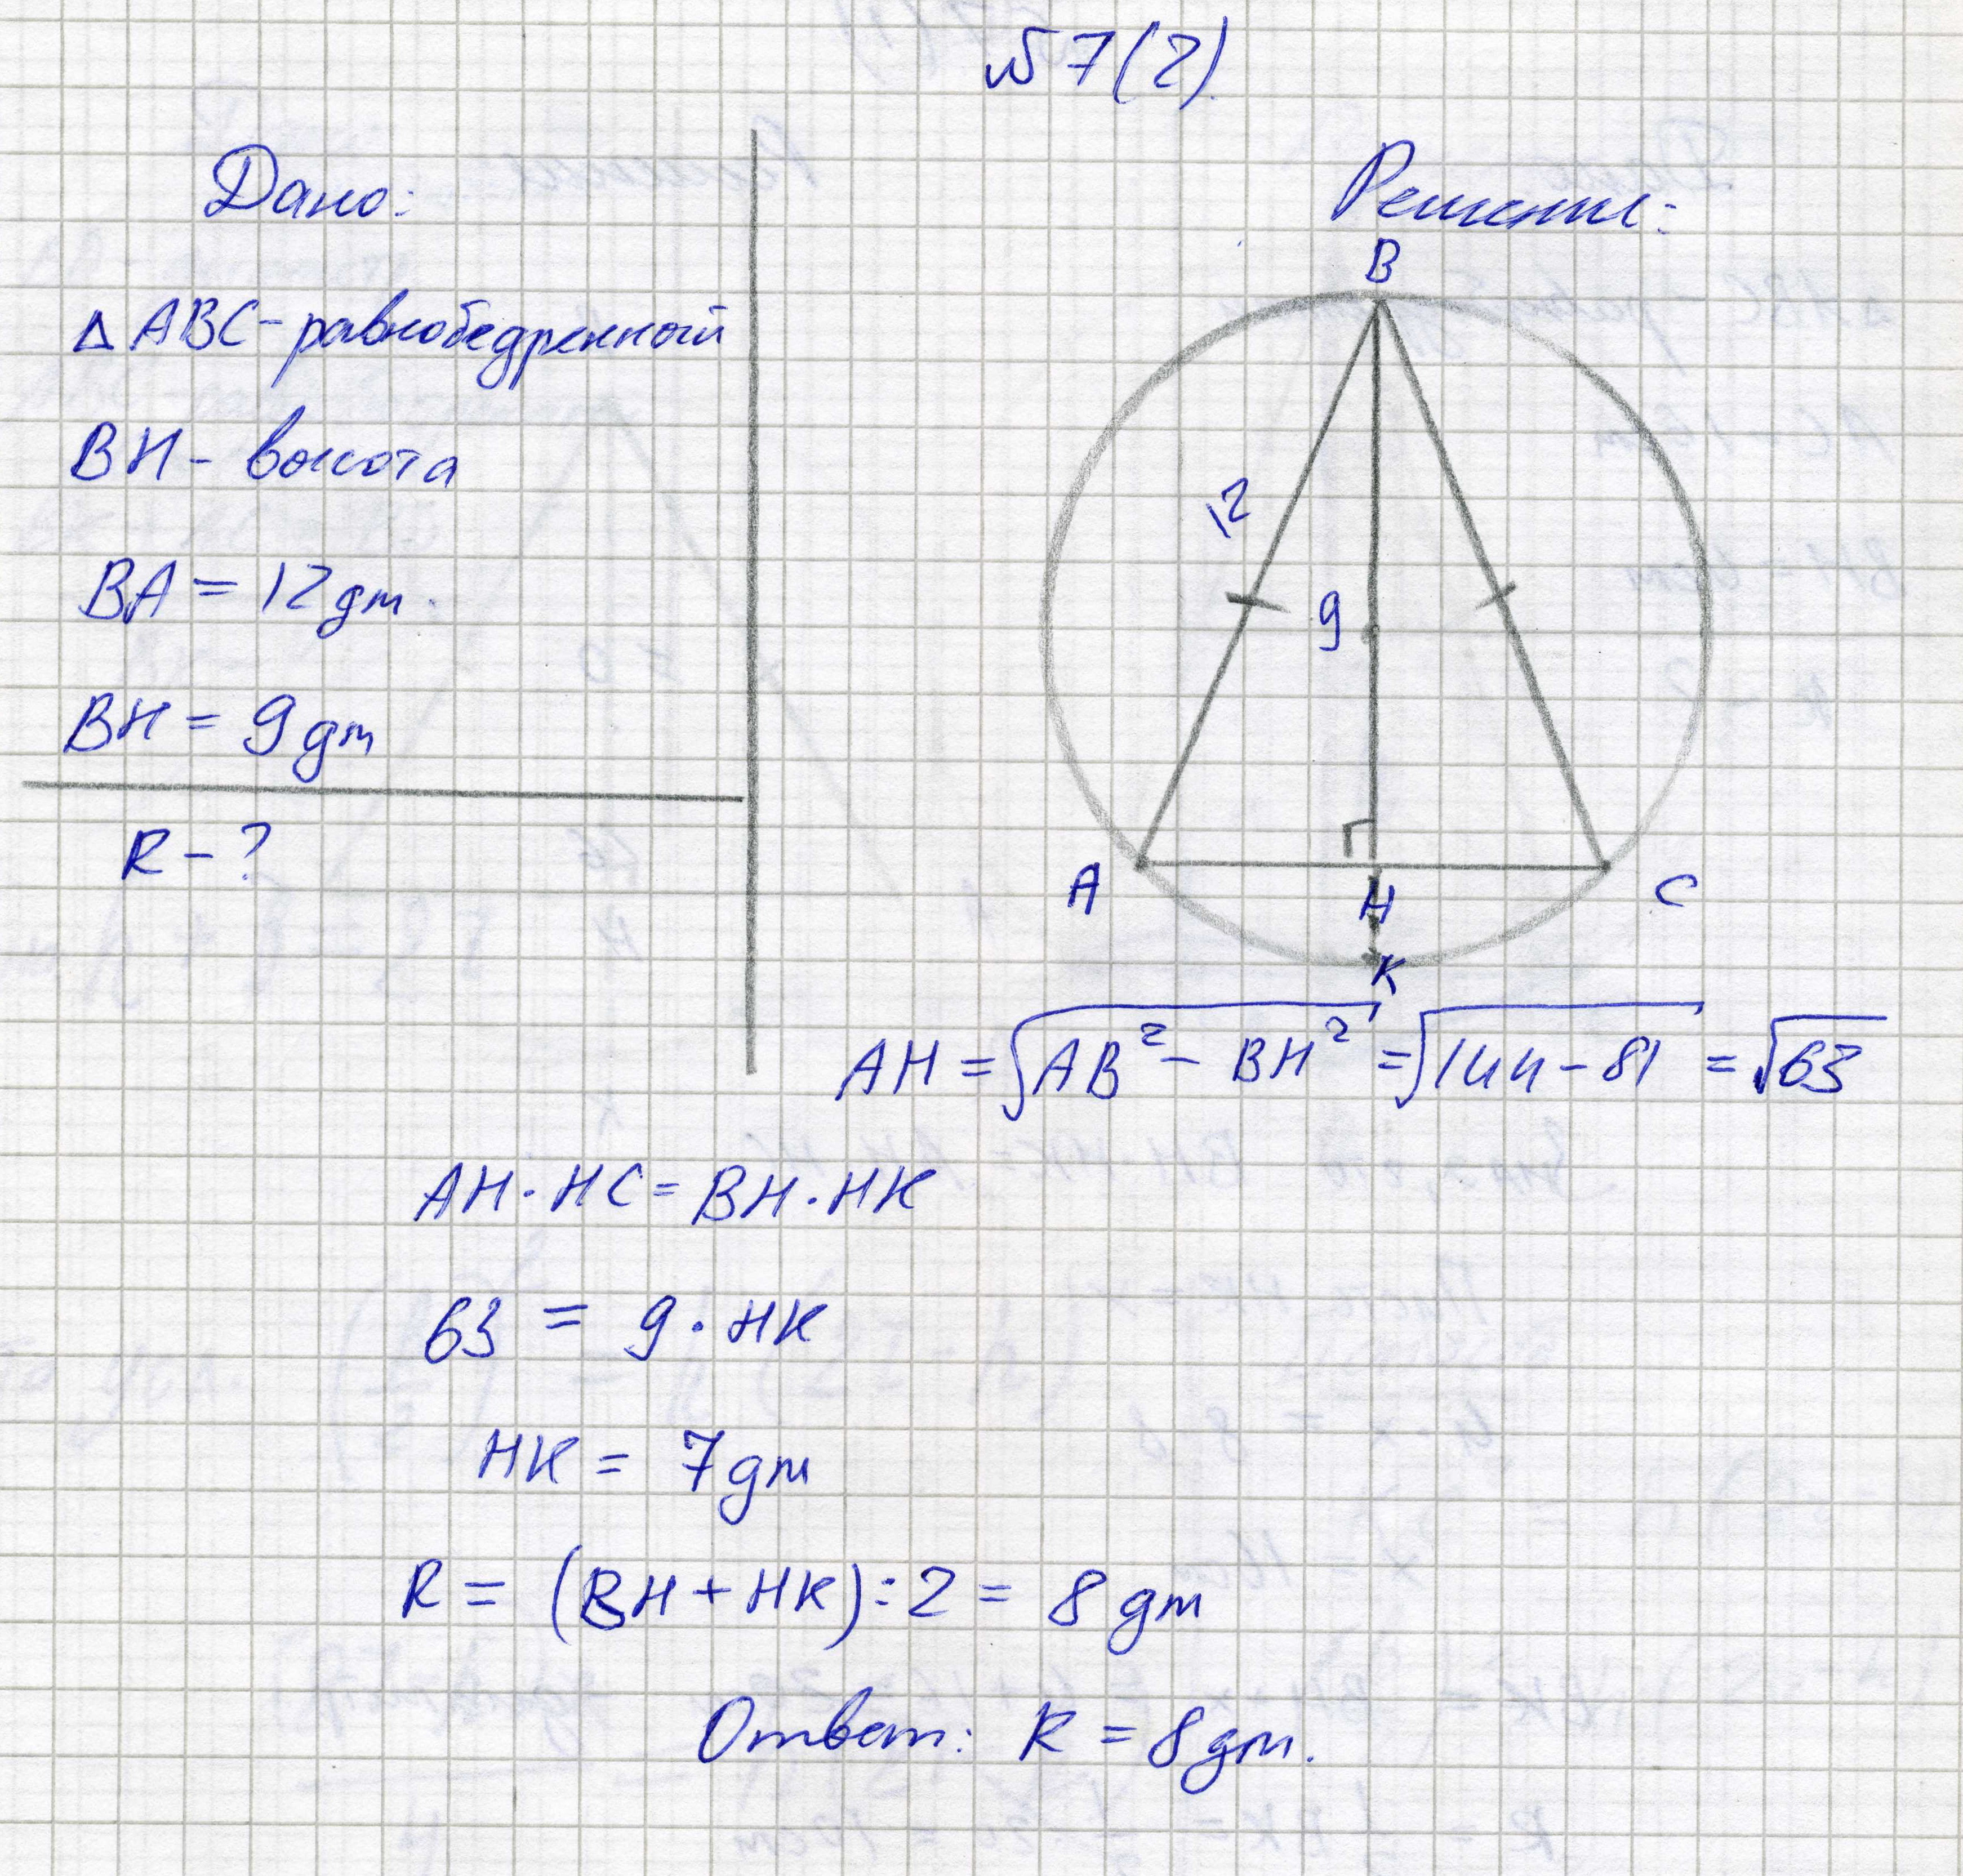 №7(2).
Дано:
Δ ABC - равнобедренный
BH - высота
BA = 12 дm.
BH = 9 дm
R - ?
Решение:
B
12
9
A
H
C
K
AH = √AB² - BH² = √144 - 81 = √63
AH · HC = BH · HK
63 = 9 · HK
HK = 7 дm
R = (BH + HK) : 2 = 8 дm
Ответ: R = 8 дm.